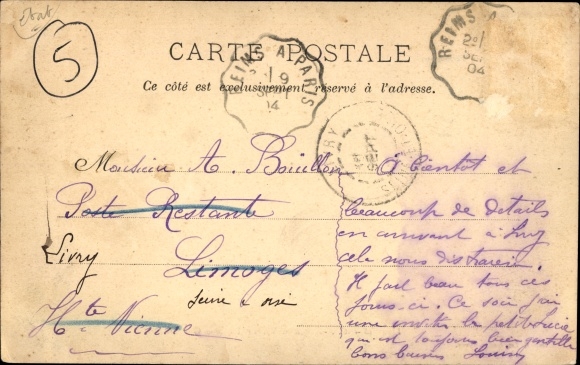 Etat
5
CARTE POSTALE
Ce côté est exclusivement réservé à l'adresse.
REIMS A PARIS
9
SEPT
04
REIMS A
2
SEPT
04
LIVRY
SEPT
Monsieur A. Bouillon
Poste Restante
Livry
Limoges
Seine & Oise
Hte Vienne
A bientôt et
beaucoup de details
en arrivant à Livry
cela nous distraira.
Il fait beau tous ces
jours-ci. Ce soir j'ai
une invitée la petite Lucie
qui est toujours bien gentille
bons baisers